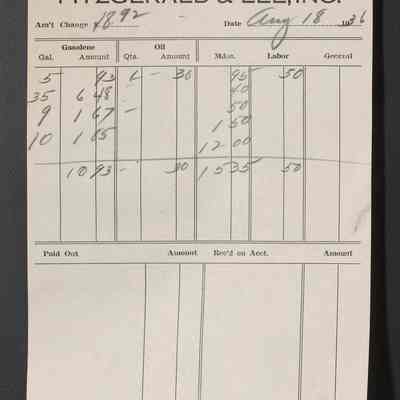 FITZGERALD & LEE, INC.
Am't Change 1892 - Date Aug 18 1936
Gasolene Oil
Gal. Amount Qts. Amount Mdse. Labor General
5 93 - 30 95 50
35 6 48 40
9 1 67 - 50
10 1 85 1 50
12 00
10 93 - 30 15 35 50
Paid Out Amount Rec'd on Acct. Amount